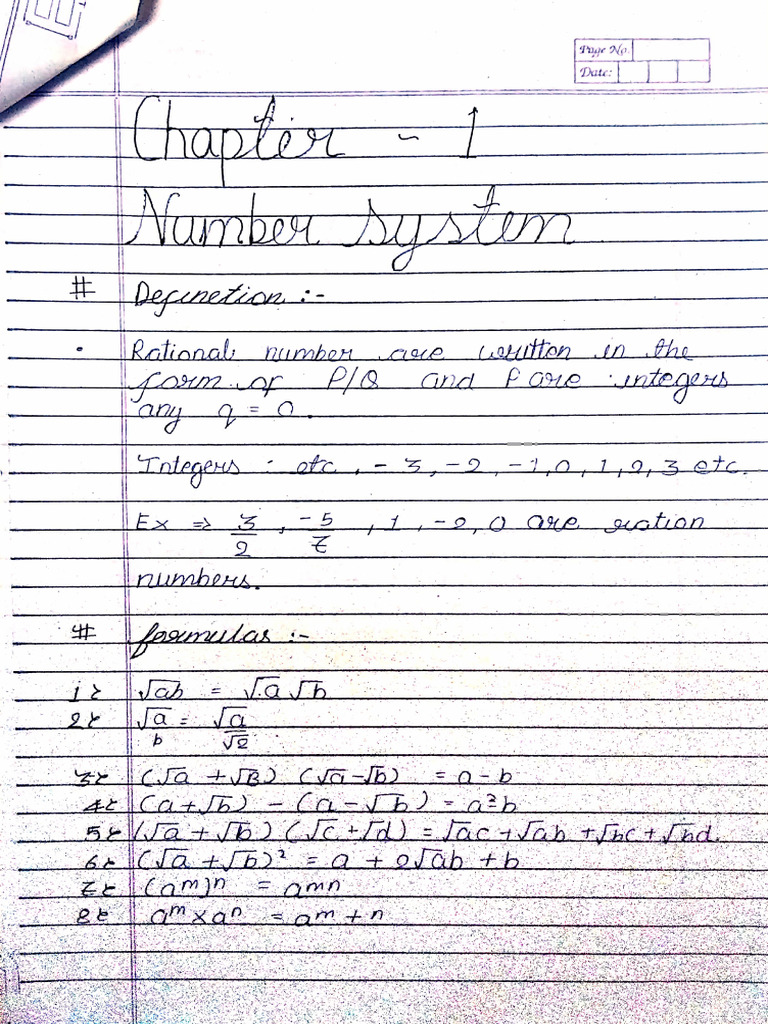 Page No.
Date:
Chapter - 1
Number system
# Definetion :-
• Rational number are written in the
form of P/Q and P are integers
any q = 0.
Integers : etc, -3, -2, -1, 0, 1, 2, 3 etc.
Ex ⇒ 3/2, -5/7, 1, -2, 0 are ration
numbers.
# formulas :-
1. √ab = √a √b
2. √a/b = √a/√2
3. (√a + √B) (√a - √b) = a - b
4. (a + √b) - (a - √b) = a² - b
5. (√a + √b) (√c + √d) = √ac + √ab + √bc + √bd.
6. (√a + √b)² = a + 2√ab + b
7. (aᵐ)ⁿ = amn
8. aᵐ × aⁿ = aᵐ + ⁿ